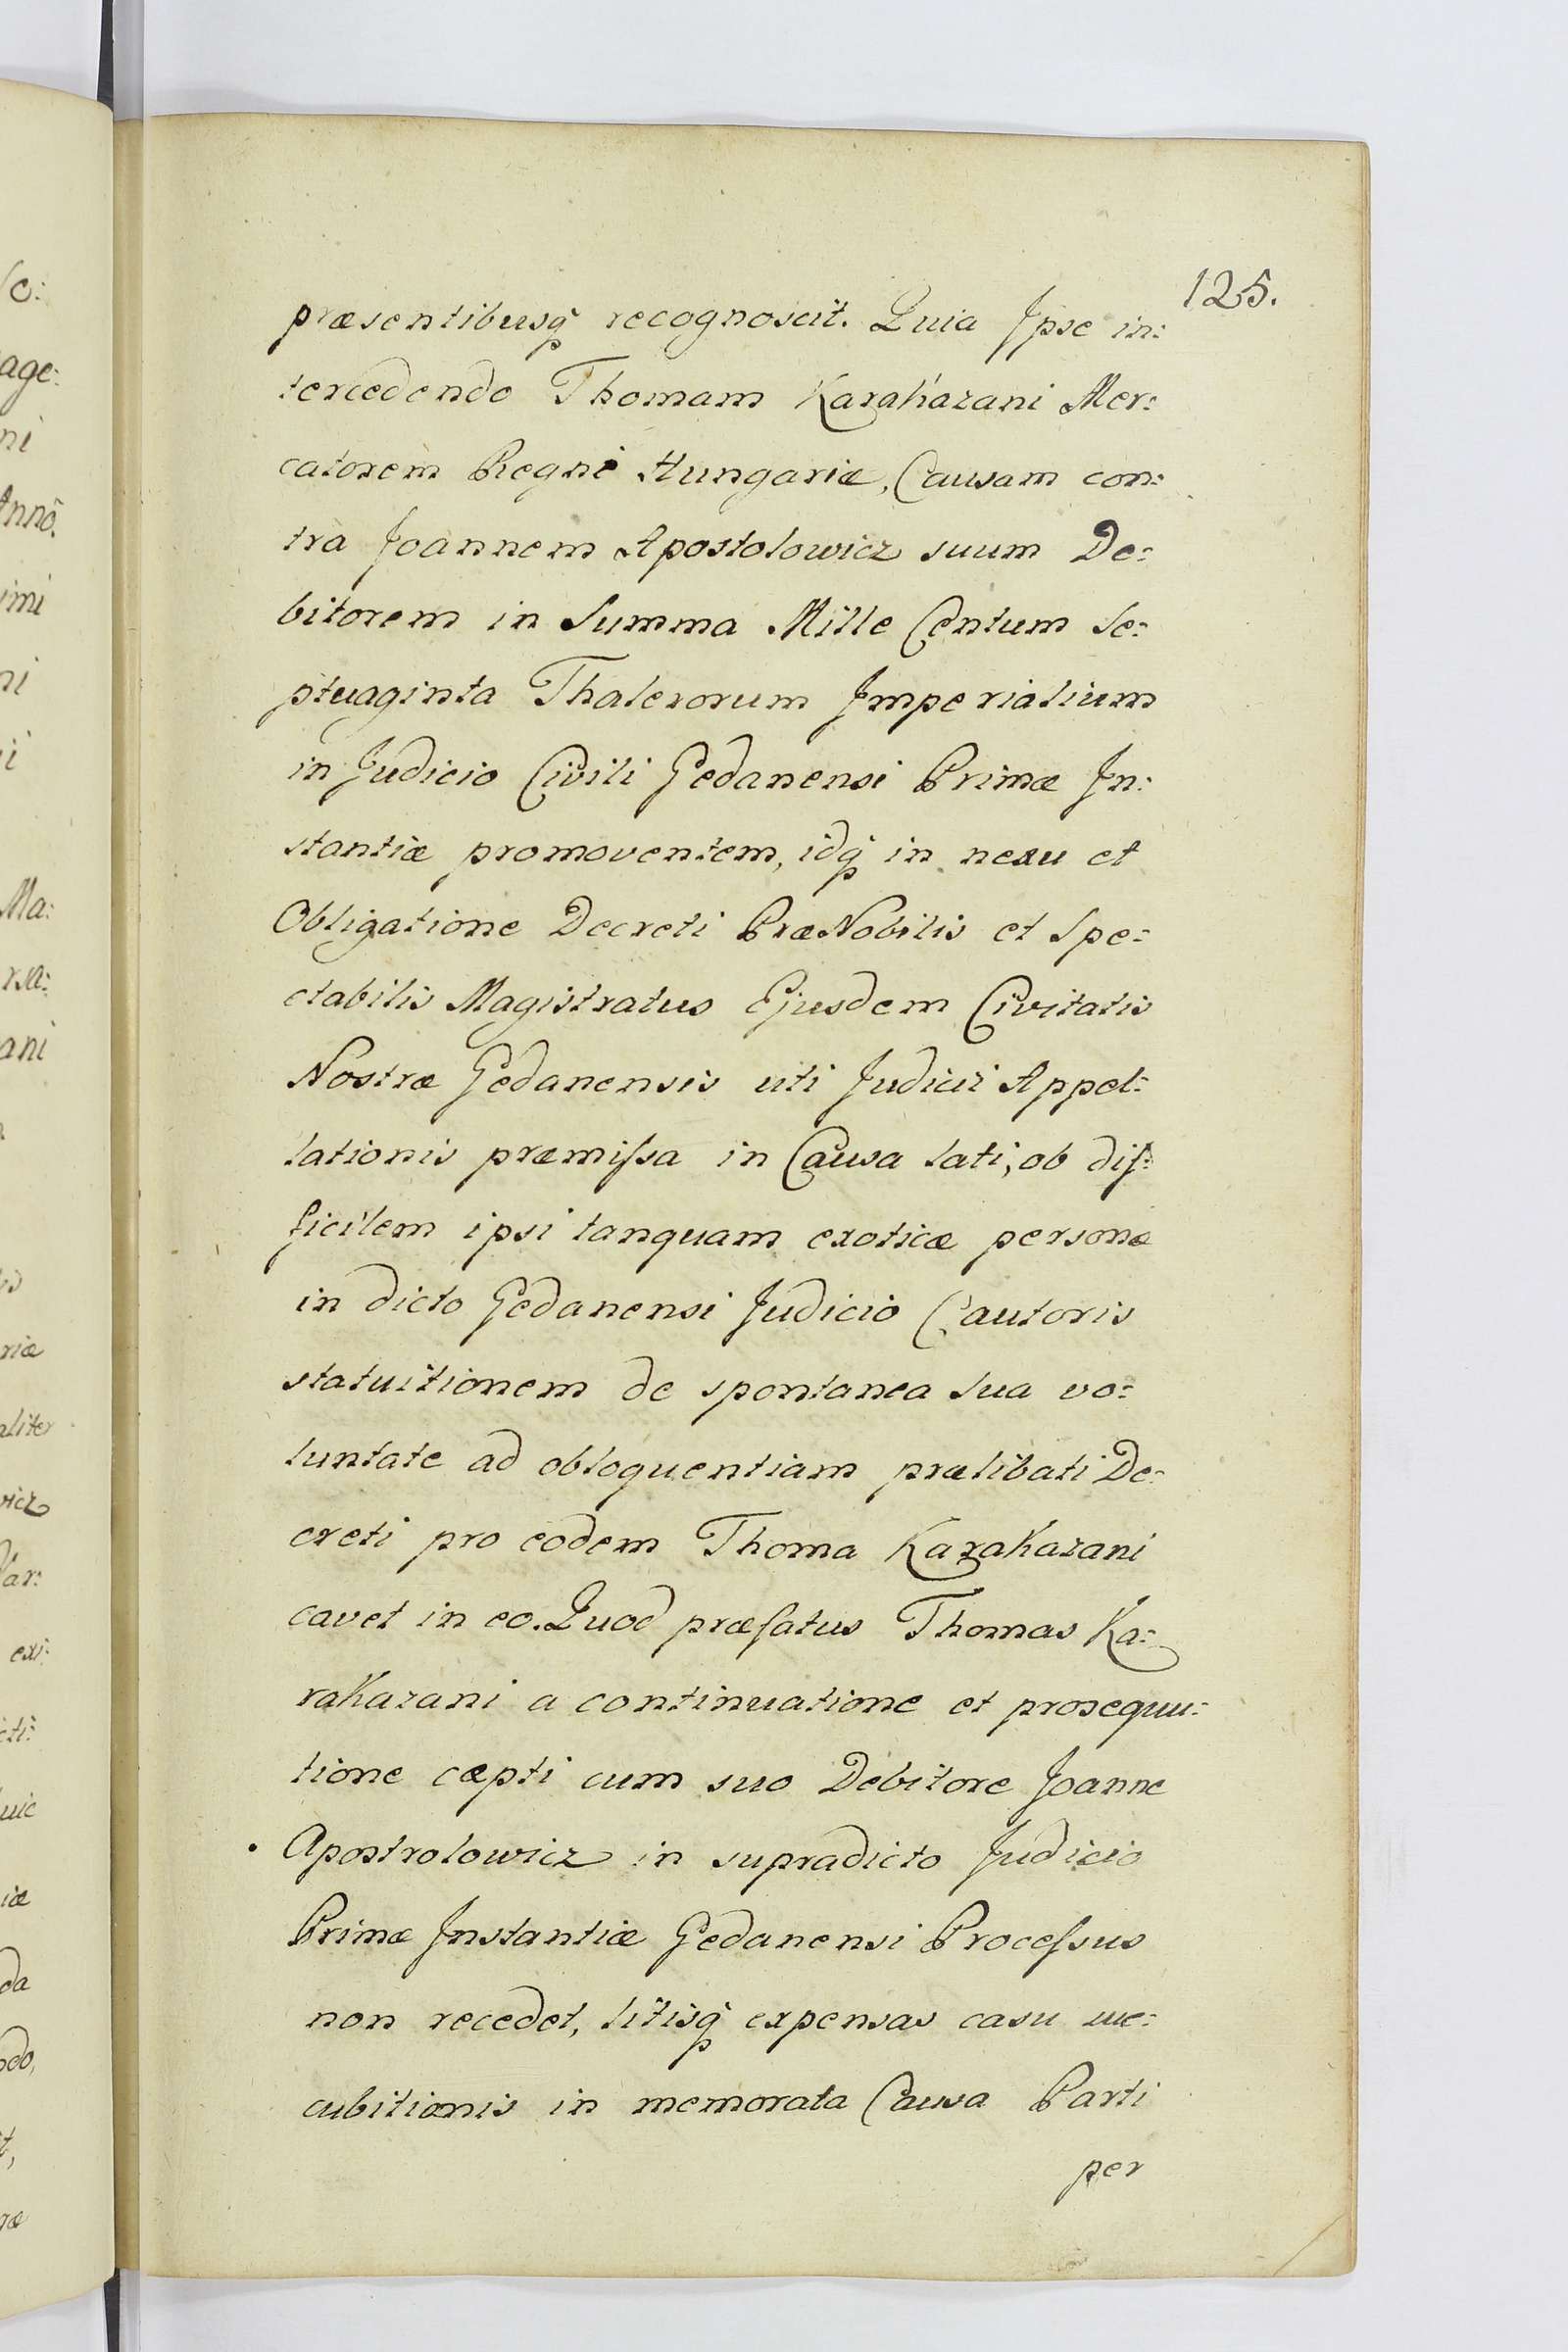 125.
præsentibusq́ recognoscit. Quia Ipse in:
tercedendo Thomam Karakazani Mer:
catorem Regni Hungariæ, Causam con:
tra Joannem Apostolowicz suum De:
bitorem in Summa Mille Centum Se:
ptuaginta Thalerorum Imperialium
in Judicio Civili Gedanensi Primæ In:
stantiæ promoventem, idq́ in nexu et
Obligatione Decreti PræNobilis et Spe:
ctabilis Magistratus Ejusdem Civitatis
Nostræ Gedanensis uti Judicii Appel:
lationis præmiſsa in Causa lati, ob dif:
ficilem ipsi tanquam exoticæ personæ
in dicto Gedanensi Judicio Cautoris
statuitionem de spontanea sua vo:
luntate ad obloquentiam prælibati De:
creti pro eodem Thoma Karakazani
cavet in eo. Quod præfatus Thomas Ka:
rakazani a continuatione et prosequu:
tione cæpti cum suo Debitore Joanne
Apostrolowicz in supradicto Judicio
Primæ Instantiæ Gedanensi Proceſsus
non recedet, litisq́ expensas casu
cubitionis in memorata Causa Parti
per
c:
age:
ni
Annô.
imi
ni
Ma:
rsa:
ani
riæ
aliter
wicz
Var:
exi:
cti:
uic
iæ
da
odo,
t,
ræ